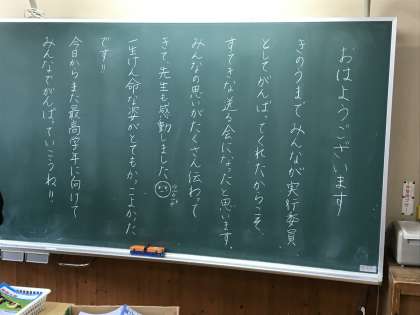 おはようございます
きのうまで みんなが実行委員
としてがんばってくれたからこそ、
すてきな送る会になったと思います。
みんなの思いがたくさん伝わって
きて、先生も感動しました
一生けん命な姿がとてもかっこよかった
です!!
今日からまた最高学年に向けて
みんなでがんばっていこうね!!